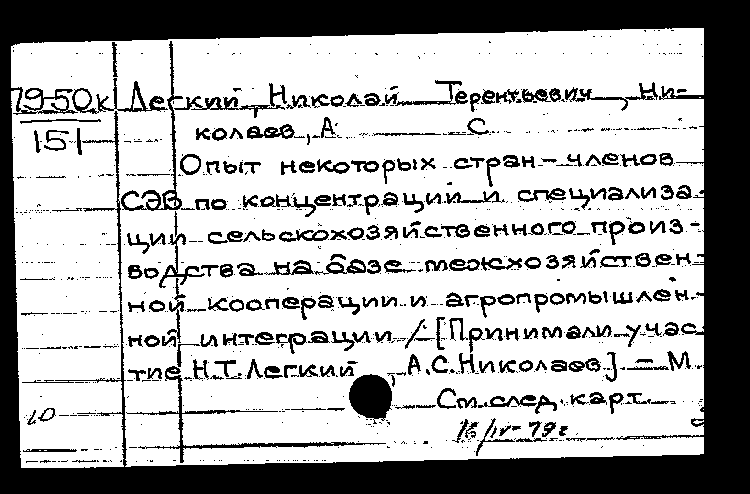 79-50к Легкий, Николай Терентьевич, Ни-
151 колаев, А С
Опыт некоторых стран-членов
СЭВ по концентрации и специализа-
ции сельскохозяйственного произ-
водства на базе межхозяйствен-
ной кооперации и агропромышлен-
ной интеграции / [Принимали учас-
тие Н.Т. Легкий, А.С. Николаев] - М
См. след. карт.
10
16/IV-79г